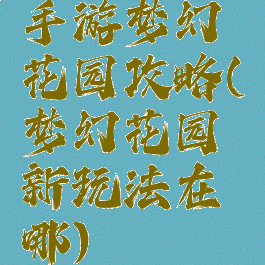 手游梦幻
花园攻略(
梦幻花园
新玩法在
哪)